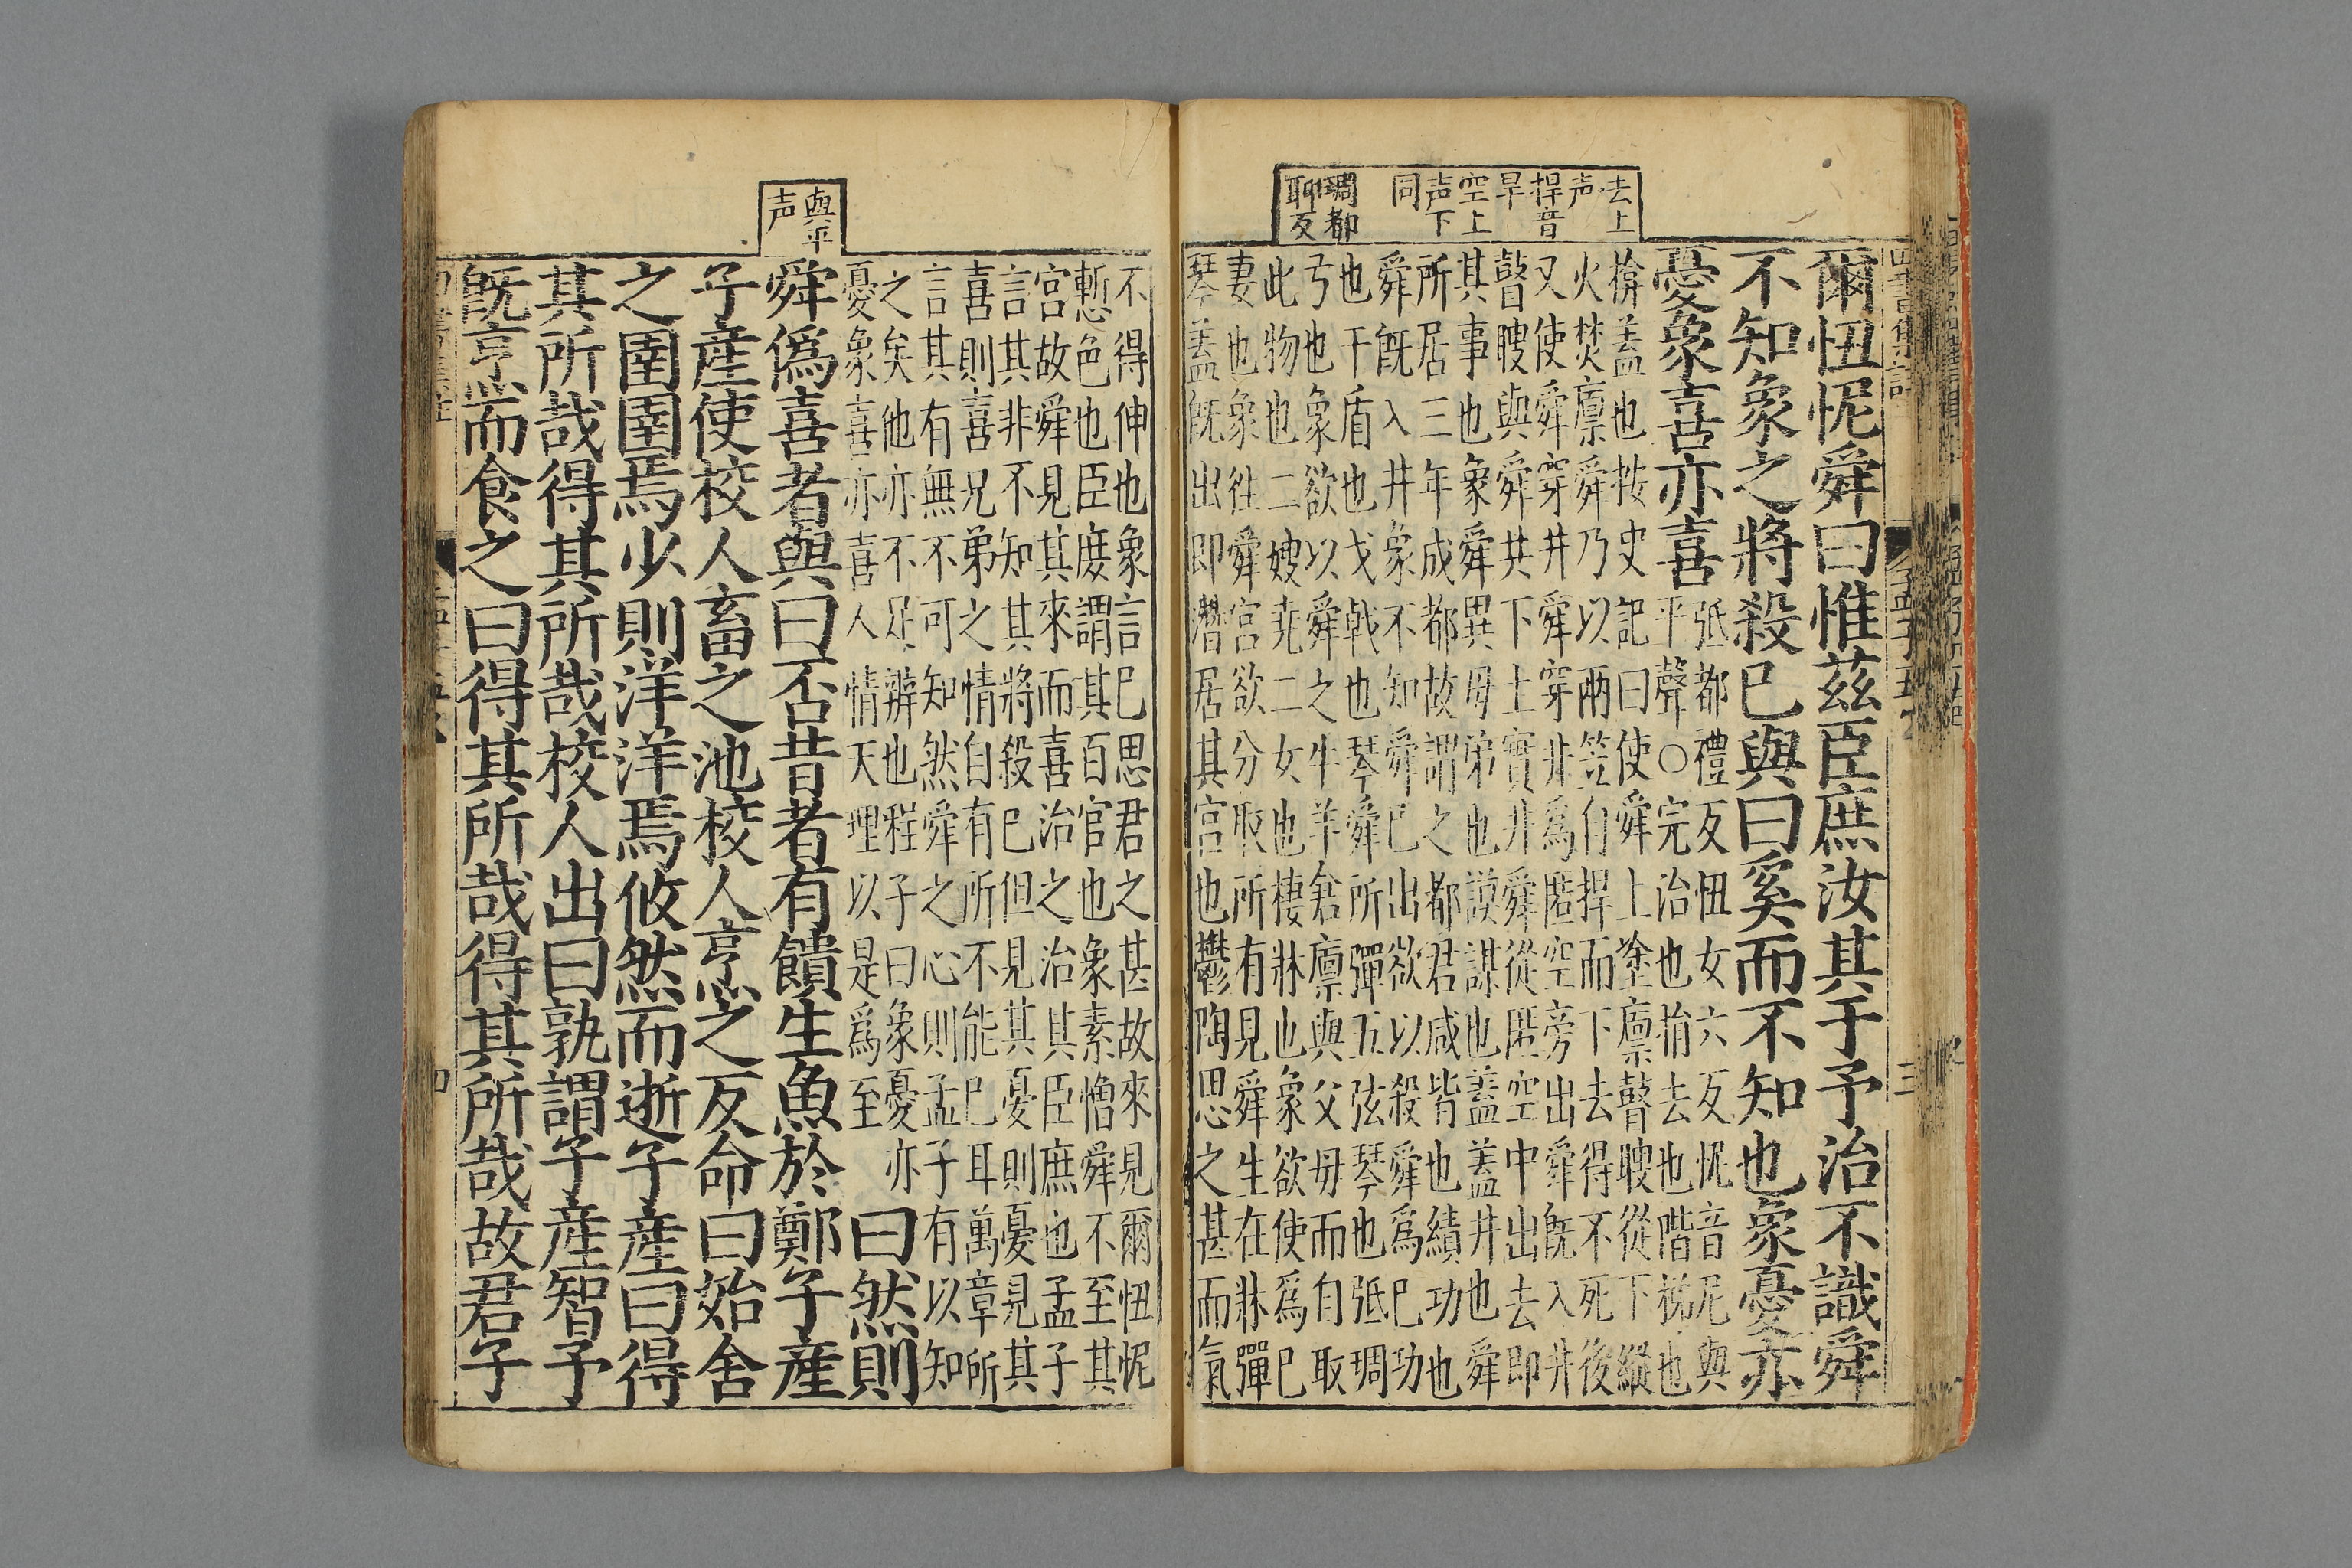 去上
声
捍音
旱
空上
声下
同
琱都
聊反
爾忸怩舜曰惟茲臣庶汝其于予治不識舜
不知象之將殺已與曰奚而不知也象憂亦
憂象喜亦喜
弤都禮反忸女六反怩音尼與
平聲○完治也捐去也階梯也
揜蓋也按史記曰使舜上塗廪瞽瞍從下縱
火焚廪舜乃以兩笠自捍而下去得不死後
又使舜穿井舜穿井爲匿空旁出舜旣入井
瞽瞍與舜共下土實井舜從匿空中出去即
其事也象舜異母弟也謨謀也蓋蓋井也舜
所居三年成都故謂之都君咸皆也績功也
舜旣入井象不知舜已出欲以殺舜爲己功
也干盾也戈戟也琴舜所彈五弦琴也弤琱
弓也象欲以舜之牛羊倉廪與父母而自取
此物也二嫂堯二女也棲牀也象欲使爲己
妻也象往舜宮欲分取所有見舜生在牀彈
琴蓋旣出即潛居其宮也鬱陶思之甚而氣
不得伸也象言已思君之甚故來見爾忸怩
慙色也臣庶謂其百官也象素憎舜不至其
宮故舜見其來而喜治之治其臣庶也孟子
言其非不知其將殺已但見其憂則憂見其
喜則喜兄弟之情自有所不能已耳萬章所
言其有無不可知然舜之心則孟子有以知
之矣他亦不足辨也程子曰象憂亦
憂象喜亦喜人情天理以是爲至
曰然則
與平
声
舜僞喜者與曰否昔者有饋生魚於鄭子産
子産使校人畜之池校人烹之反命曰始舍
之圉圉焉少則洋洋焉攸然而逝子産曰得
其所哉得其所哉校人出曰孰謂子産智予
旣烹而食之曰得其所哉得其所哉故君子